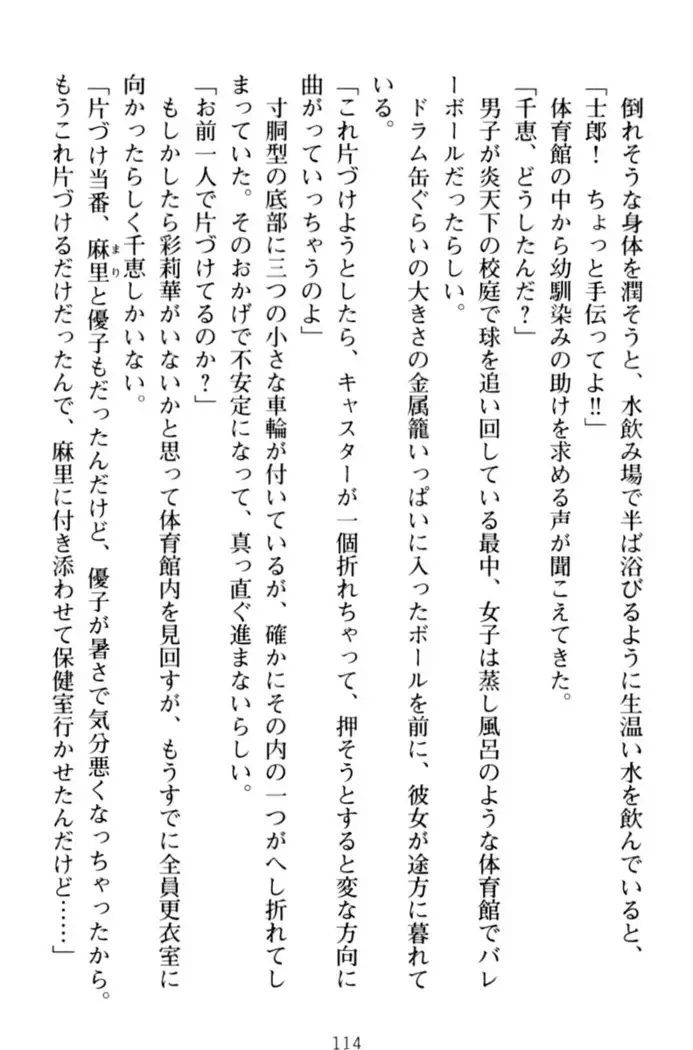 倒れそうな身体を潤そうと、水飲み場で半ば浴びるように生温い水を飲んでいると、
「士郎！　ちょっと手伝ってよ!!」
体育館の中から幼馴染みの助けを求める声が聞こえてきた。
「千恵、どうしたんだ？」
男子が炎天下の校庭で球を追い回している最中、女子は蒸し風呂のような体育館でバレ
ーボールだったらしい。
ドラム缶ぐらいの大きさの金属籠いっぱいに入ったボールを前に、彼女が途方に暮れて
いる。
「これ片づけようとしたら、キャスターが一個折れちゃって、押そうとすると変な方向に
曲がっていっちゃうのよ」
寸胴型の底部に三つの小さな車輪が付いているが、確かにその内の一つがへし折れてし
まっていた。そのおかげで不安定になって、真っ直ぐ進まないらしい。
「お前一人で片づけてるのか？」
もしかしたら彩莉華がいないかと思って体育館内を見回すが、もうすでに全員更衣室に
向かったらしく千恵しかいない。
「片づけ当番、麻里と優子もだったんだけど、優子が暑さで気分悪くなっちゃったから。
まり
もうこれ片づけるだけだったんで、麻里に付き添わせて保健室行かせたんだけど……」
114